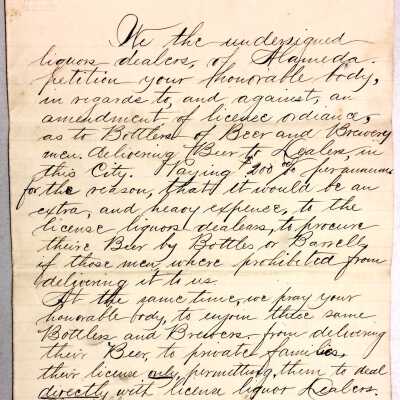 We the undersigned
liquors dealers, of Alameda.
petition your honorable body,
in regards to, and against, an
amendment of license ordiance,
as to Bottlers of Beer and Brewery
men. delivering Beer to Dealers, in
this City. Paying $200 00/xx per annums
for the reason, that it would be an
extra, and heavy expense, to the
license liquors dealears, to procure
theire Beer by Bottles or Barrells,
if those men, where prohibited from
delivering it to us.
At the same time, we pray your
honorable body, to enjoin these same
Bottlers and Brewers. from delivering
their Beer, to private families,
their license only, permitting them to deal
directly with license liquor Dealers.